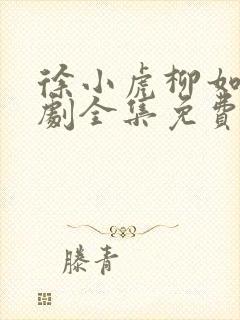 徐小虎柳如
劇全集免費
滕青